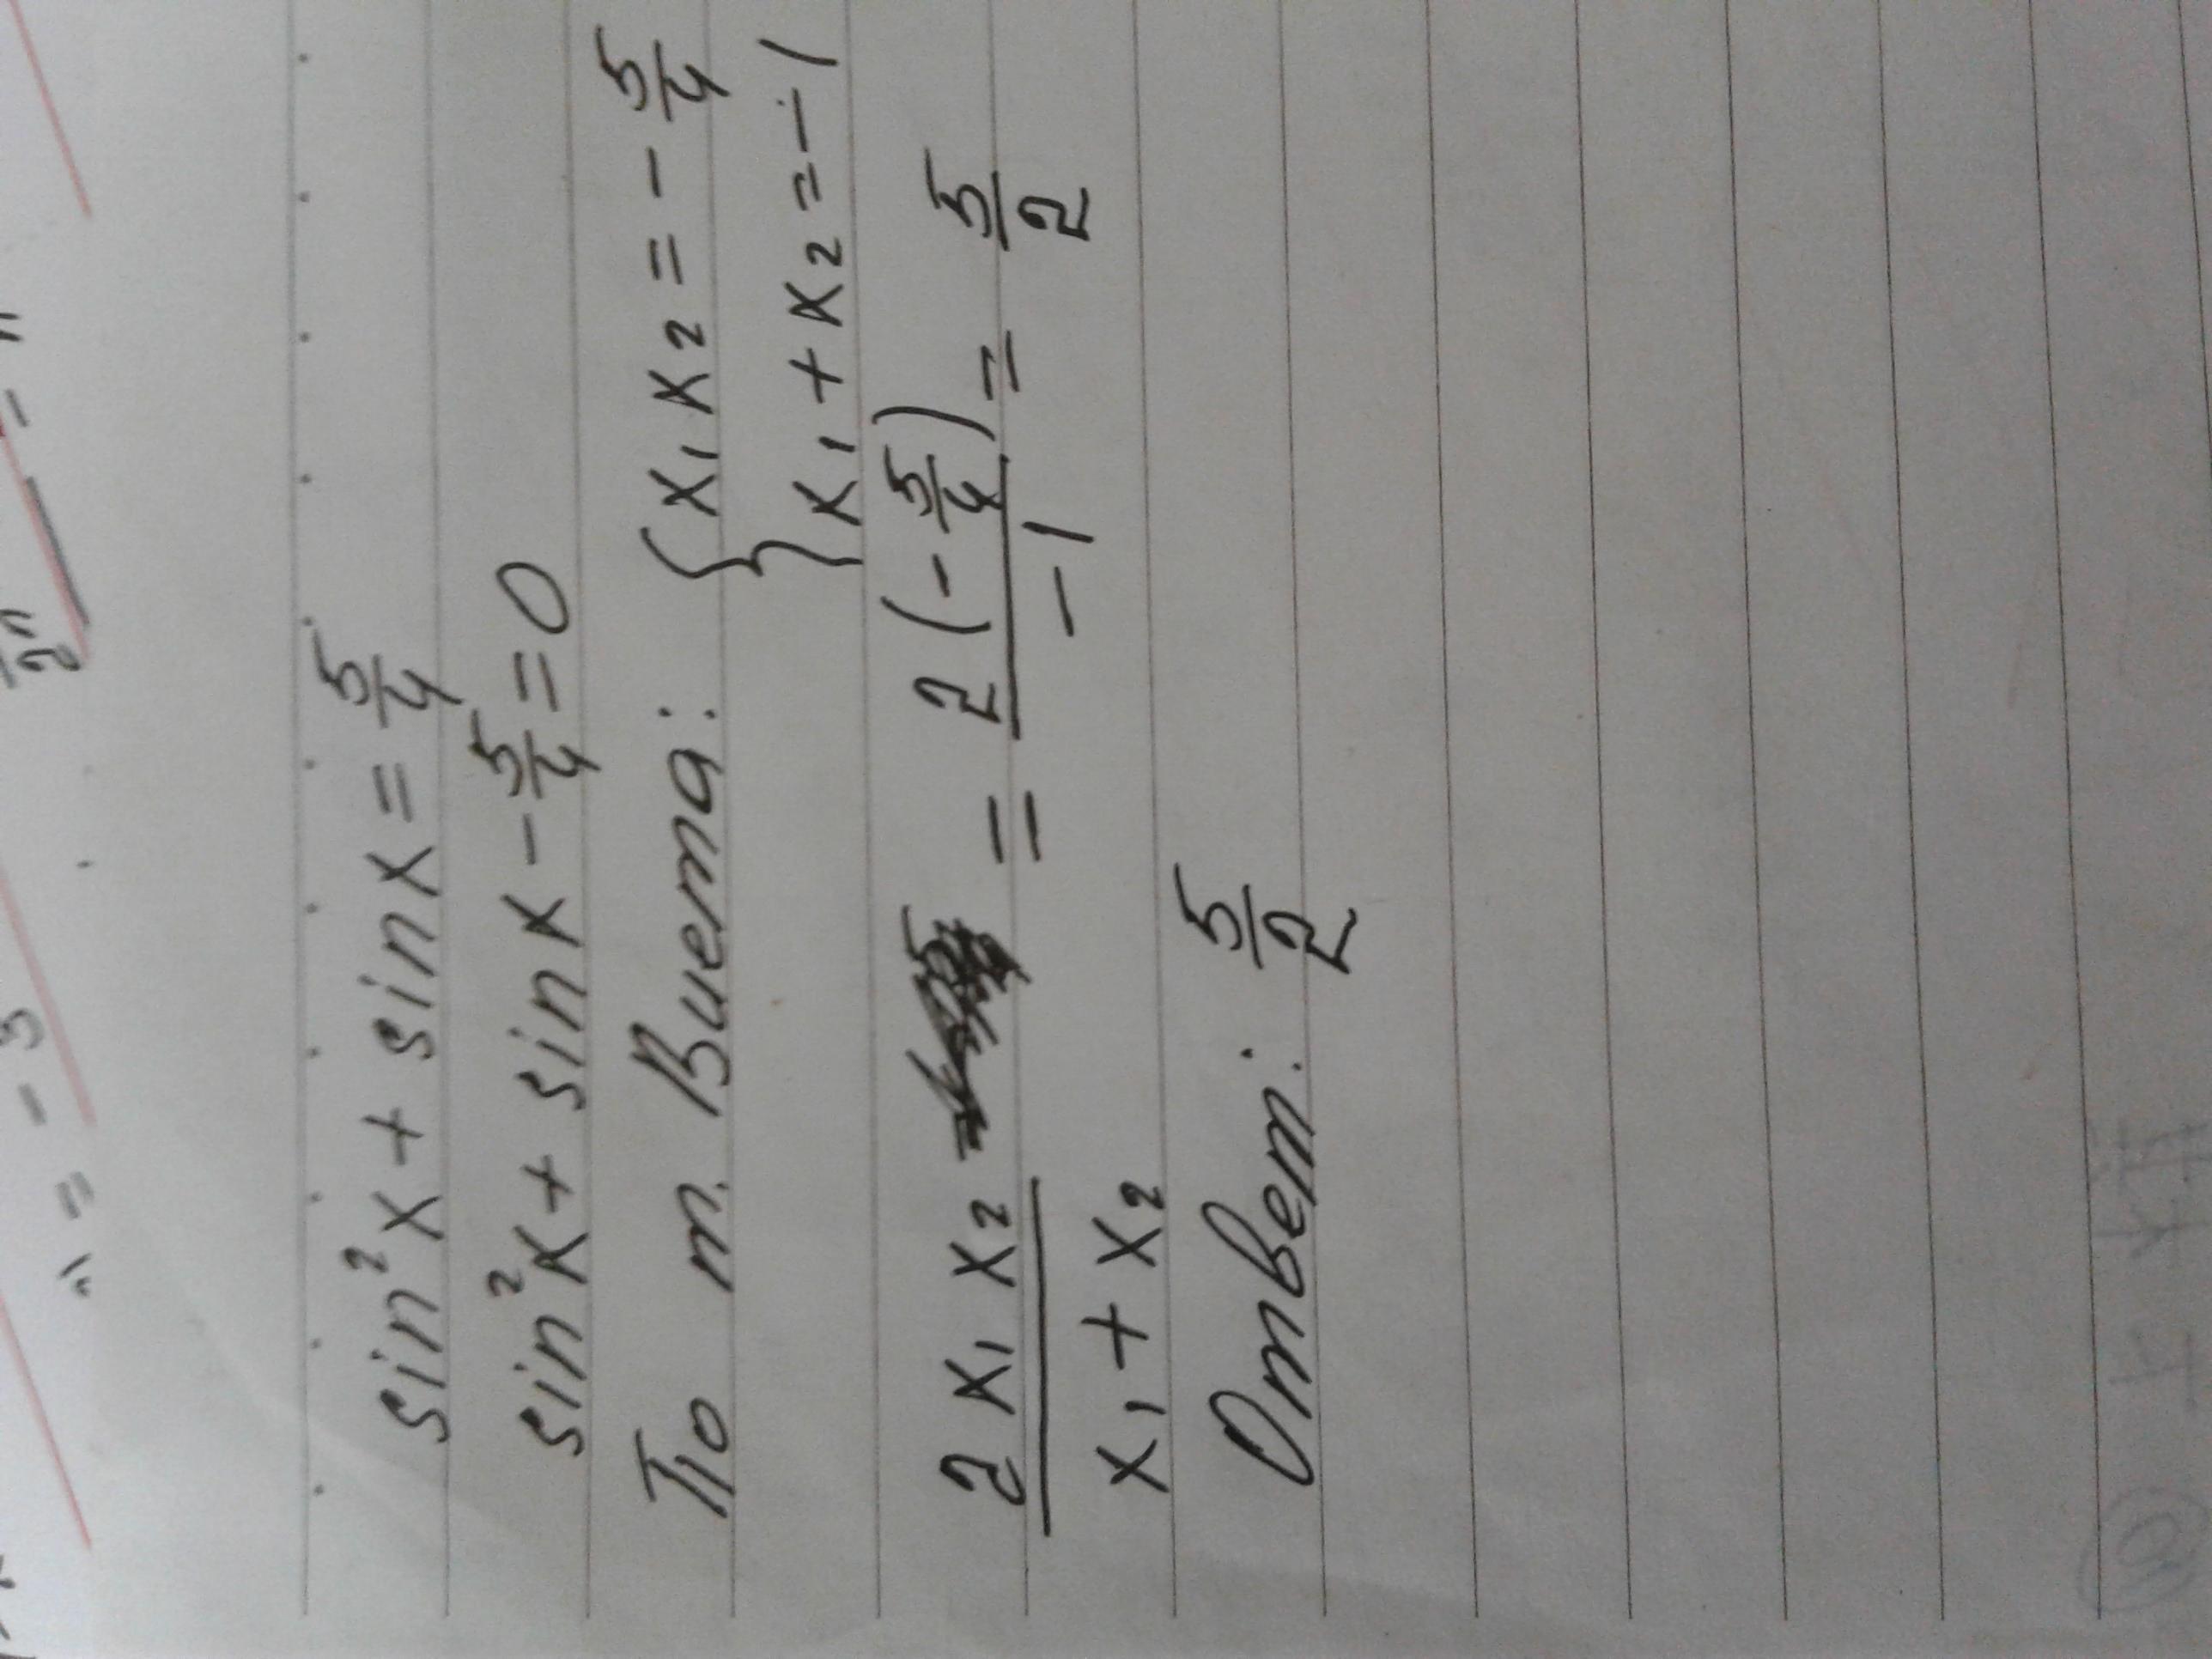 sin²x + sinx = 5/4
sin²x + sinx - 5/4 = 0
По т. Виета: { x₁x₂ = - 5/4
x₁ + x₂ = -1
2x₁x₂ / x₁ + x₂ = 2(- 5/4) / -1 = 5/2
Ответ: 5/2